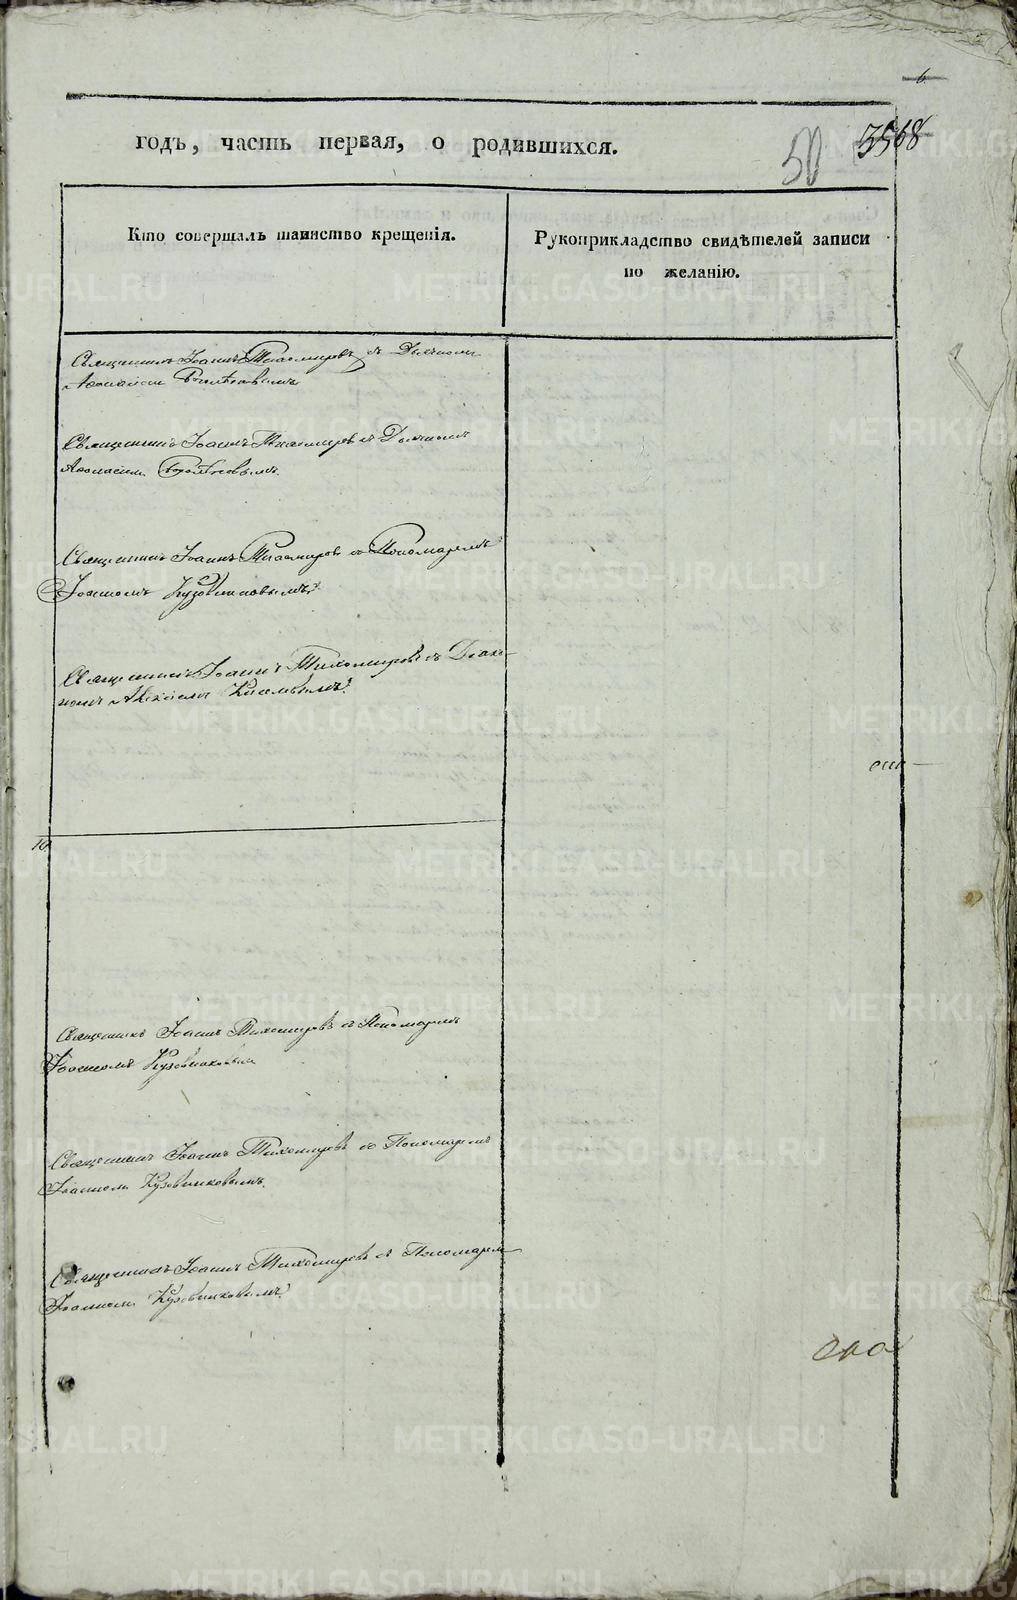 6
годъ, часть первая, о родившихся.
50
3568
Кто совершалъ таинство крещенія.
Рукоприкладство свидѣтелей записи
по желанію.
Священникъ Іоаннъ Тихомировъ съ Дьячкомъ
Священникъ Іоаннъ Тихомировъ съ Дьячкомъ
Священникъ Іоаннъ Тихомировъ съ Пономаремъ
Іоанномъ Кузовниковымъ.
Священникъ Іоаннъ Тихомировъ съ Діако-
номъ
10
Священникъ Іоаннъ Тихомировъ съ Пономаремъ
Іоанномъ Кузовниковым
Священникъ Іоаннъ Тихомировъ съ Пономаремъ
Іоанномъ Кузовниковымъ.
Священникъ Іоаннъ Тихомировъ съ Пономарем
Іоанномъ Кузовниковымъ.
METRIKI.GASO-URAL.RU